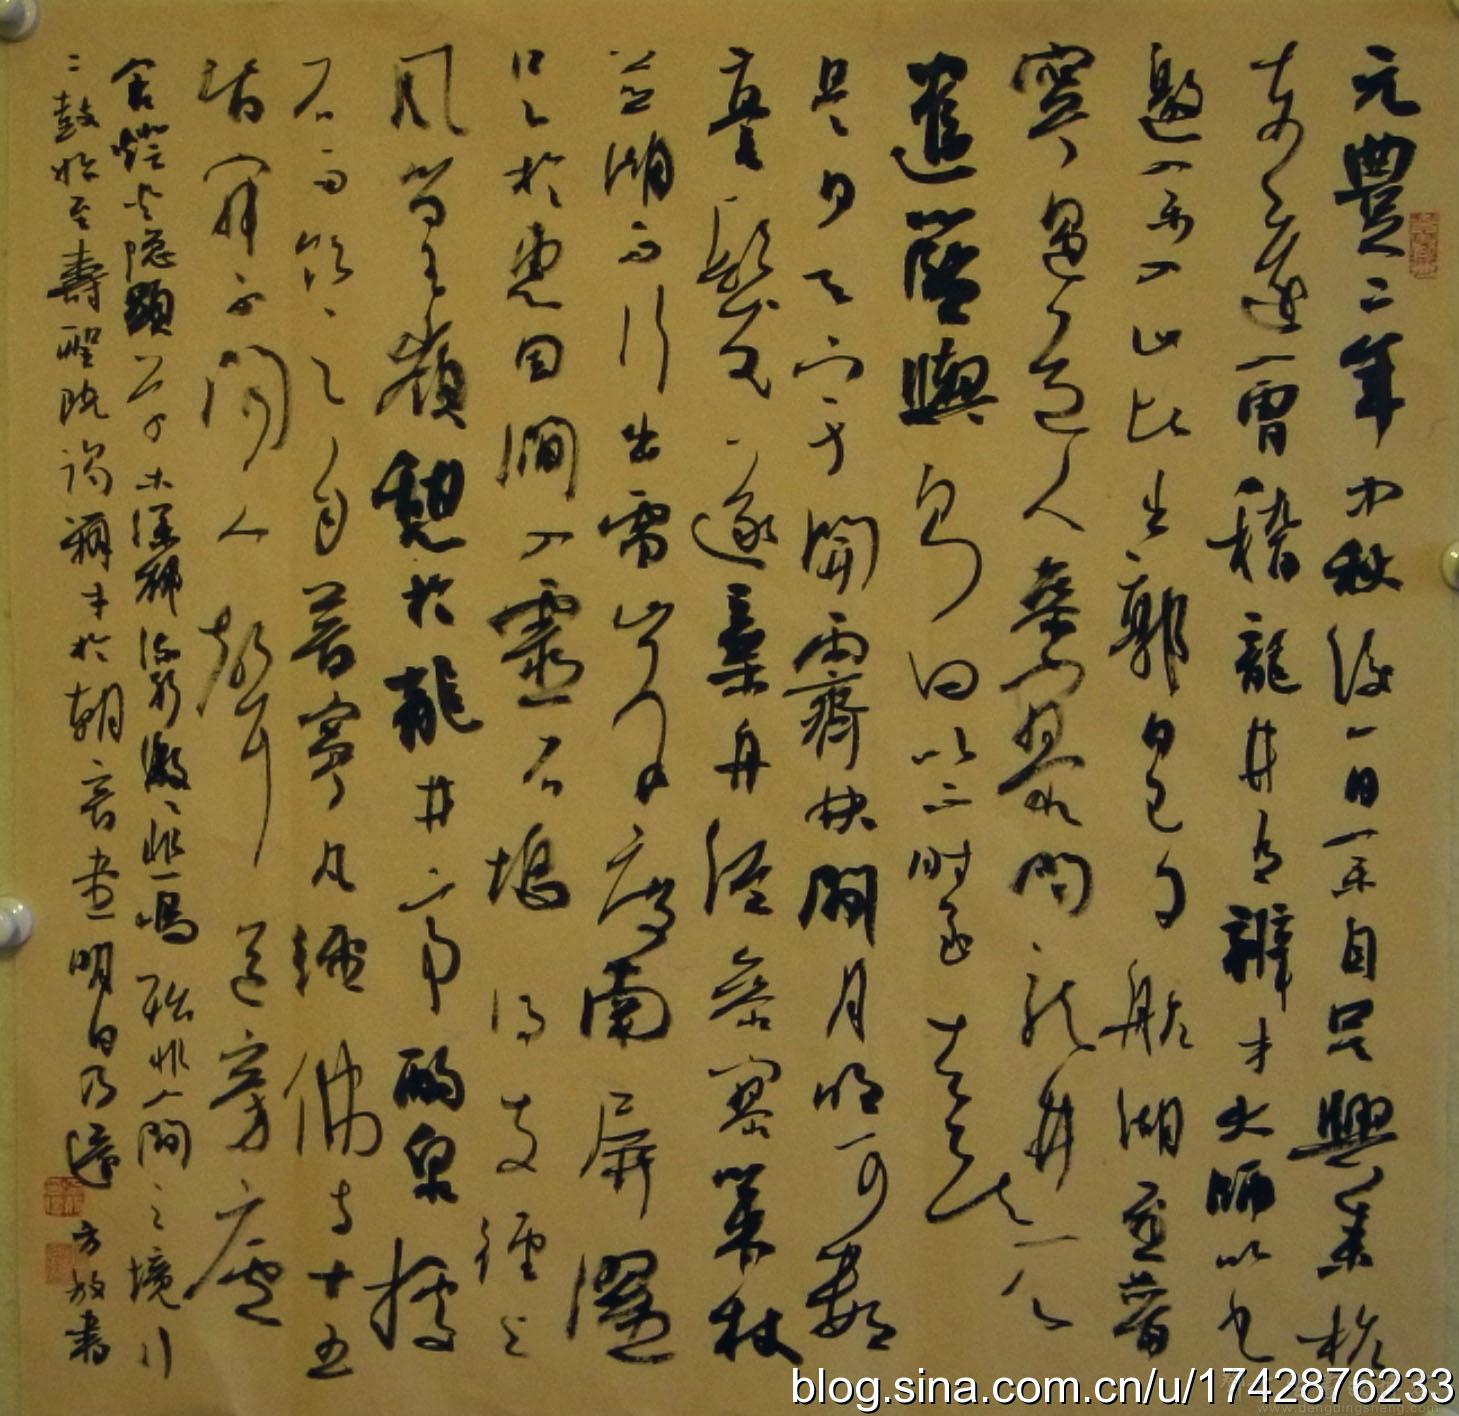 元豐二年中秋後一日余自吳興來杭
東還會稽龍井有辨才大師以書
邀余入山比出郭日已夕航湖至普
寧遇道人參寥問龍井所
遣籃輿則曰以不時至去矣
是夕天宇開霽林間月明可數
毫髮遂棄舟從參寥策杖
並湖而行出雷峰度南屏濯
足於惠因澗入靈石塢得支徑上
風篁嶺憩於龍井亭酌泉據
石而飲之自普寧凡經佛寺十五
皆寂不聞人聲道旁廬
舍燈火隱顯草木深鬱流水激激悲鳴殆非人間之境行
二鼓始至壽聖院謁辨才於朝音堂明日乃還 方放書
blog.sina.com.cn/u/1742876233